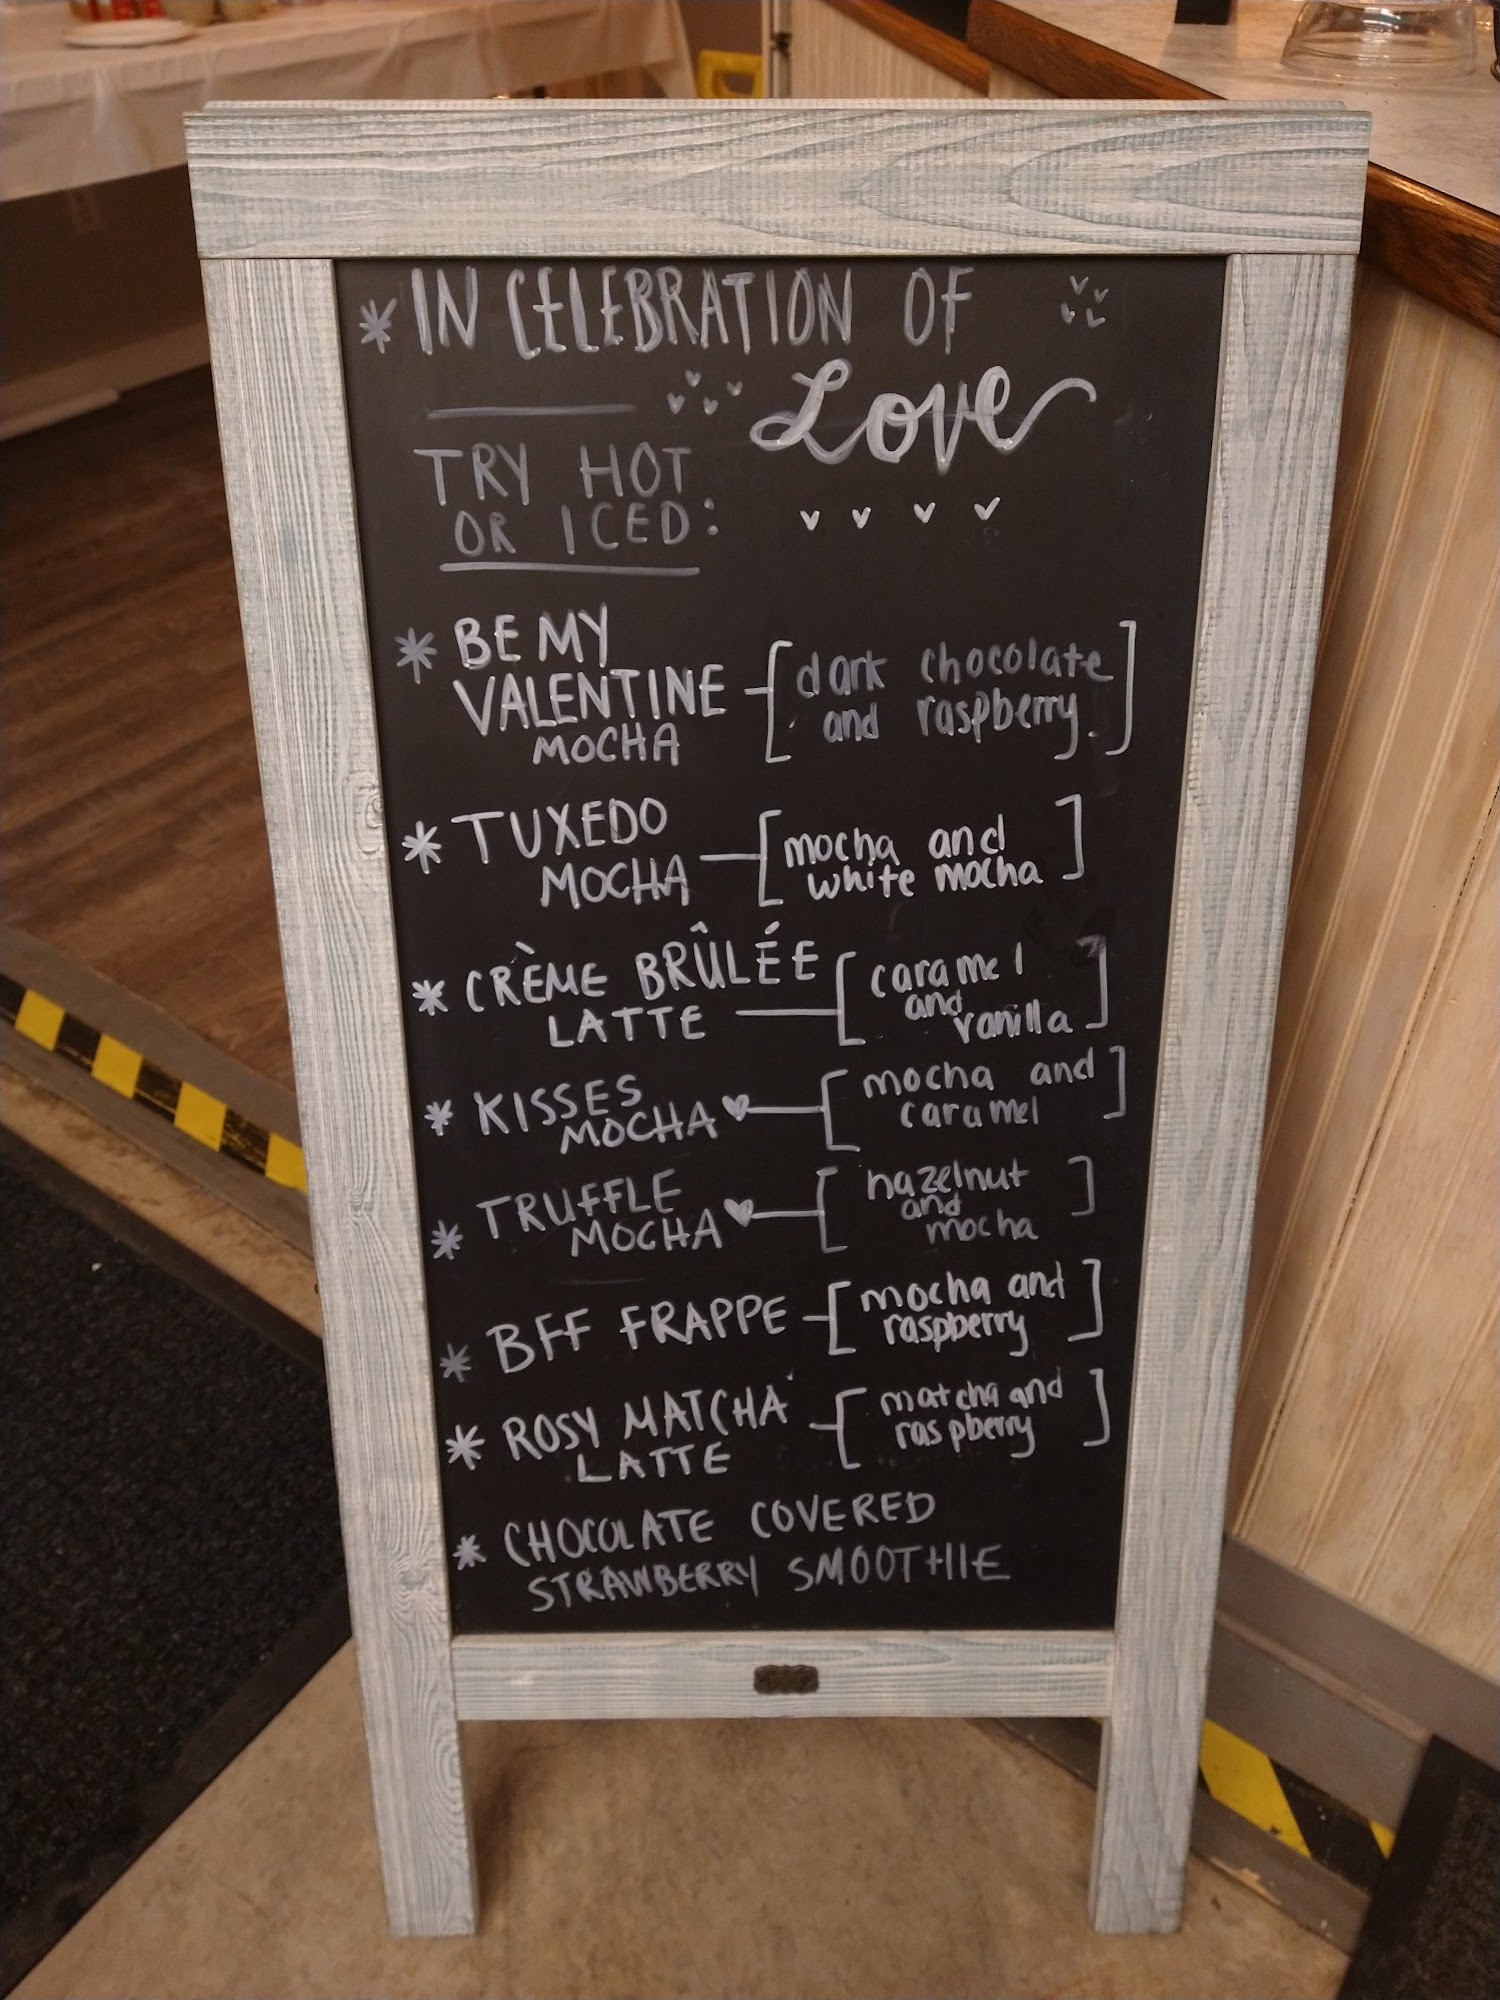 * IN CELEBRATION OF
Love
TRY HOT
OR ICED:
* BE MY
VALENTINE
MOCHA
[dark chocolate
and raspberry]
* TUXEDO
MOCHA
[mocha and
white mocha]
* CRÈME BRÛLÉE
LATTE
[caramel
and
vanilla]
* KISSES
MOCHA
[mocha and
caramel]
* TRUFFLE
MOCHA
[hazelnut
and
mocha]
* BFF FRAPPE
[mocha and
raspberry]
* ROSY MATCHA
LATTE
[matcha and
raspberry]
* CHOCOLATE COVERED
STRAWBERRY SMOOTHIE